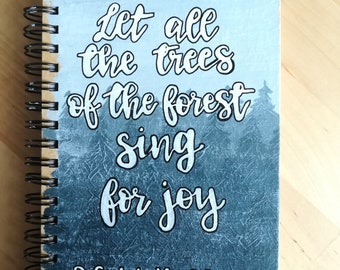 Let all
the trees
of the forest
sing
for joy